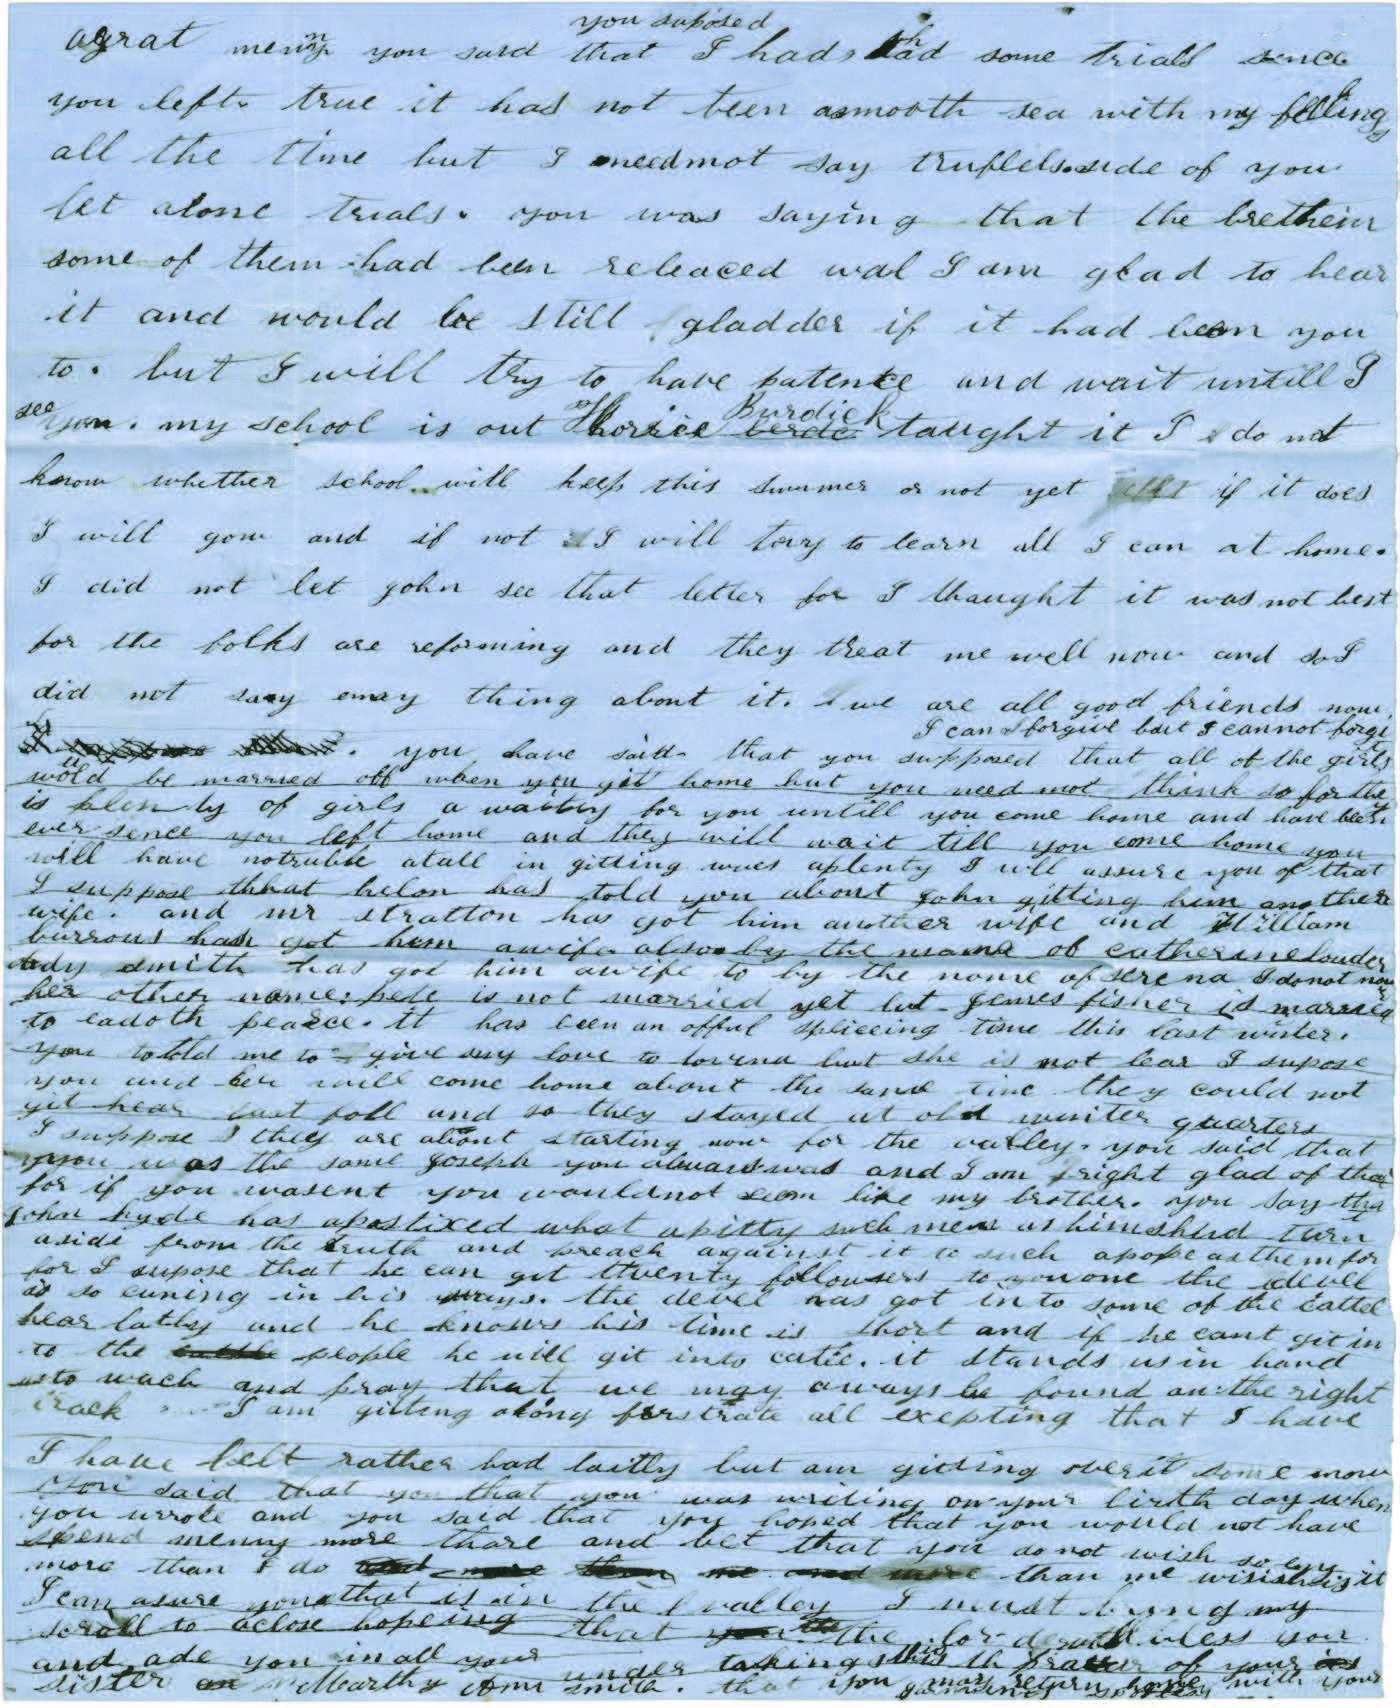 agrat menny you said that you suposed I had had some trials sence
you left. true it has not been asmooth sea with my feeling
all the time but I need not say side of you
let alone trials. you was saying that the brethein
some of them had been releaced wal I am glad to hear
it and would be still gladder if it had bean you
to. but I will try to have patence and wait untill I
see you. my school is out Horice Burdick taught it I do not
know whether school will keep this summer or not yet if it does
I will gow and if not I will tary to learn all I can at home.
I did not let john see that letter for I thaught it was not best
for the folks are reforming and they treat me well now and so I
did not saay enay thing about it. we are all good friends now
I can forgive bait I cannot forgit
you have said that you supposed that all of the girls
would be married off when you git home but you need not think so for the
is plenty of girls a waiting for you untill you come home and have been
ever sence you left home and they will wait till you come home you
will have notruble atall in gitting aplenty I will assure you of that
I suppose that helon has told you about John gitting him another
wife. and mr stratton has got him another wife and William
burrous has got him awife also by the name of catherinelouder
ady smith has got him awife to by the name of serena I do not now
her other name. is not married yet but jemes fisher is married
to eadoth pearce. it has been an offul spliceing time this last winter.
you told me to give my love to lovina but she is not hear I supose
you and her will come home about the same time they could not
git hear last fall and so they stayed at old winter quarters
I suppose they are about starting now for the valley. you said that
you was the same Joseph you always was and I am right glad of that
for if you wasent you wouldnot seem like my brother. you say that
John hyde has apostized what apitty such men as himshud turn
aside from the truth and preach against it to such apope as them for
for I supose that he can get twenty followers to you one the devel
is so cuning in his ways. the devel has got in to some of the cattel
hear latly and he knows his time is short and if he cant git in
to the people he will git into catle. it stands us in hand
as to wach and pray that we may aways be found an the right
track I am gitting along furstrate all exepting that I have
I have felt rather bad laitly but am gitting overit some now
you said that you that you was writing on your birth day when
you wrote and you said that you hoped that you would not have
spend menny more thare and bet that you do not wish so eny
more than I do than me wish it
I can asure you that is in the valley I must bring my
scroll to aclose hopeing that the lord will bless you
and ade you in all your under takings this is the prayer of your
sister Marthy Ann smith. that you may return home with your